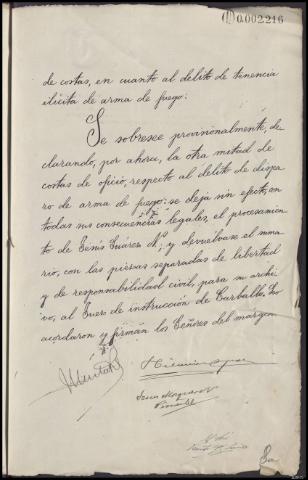 0.002216
de costas, en cuanto al delito de tenencia
ilícita de arma de fuego:
Se sobresee provisionalmente, de-
clarando, por ahora, la otra mitad de
costas de oficio, respecto al delito de dispa-
ro de arma de fuego: se deja sin efecto, en
todas sus consecuencias legales, el procesamien-
to de Suarez; y devuélvase el suma-
rio, con las piezas separadas de libertad
y de responsabilidad civil, para su archi-
vo, al Juez de instrucción de Carballo. Lo
acordaron y firman los Señores del margen